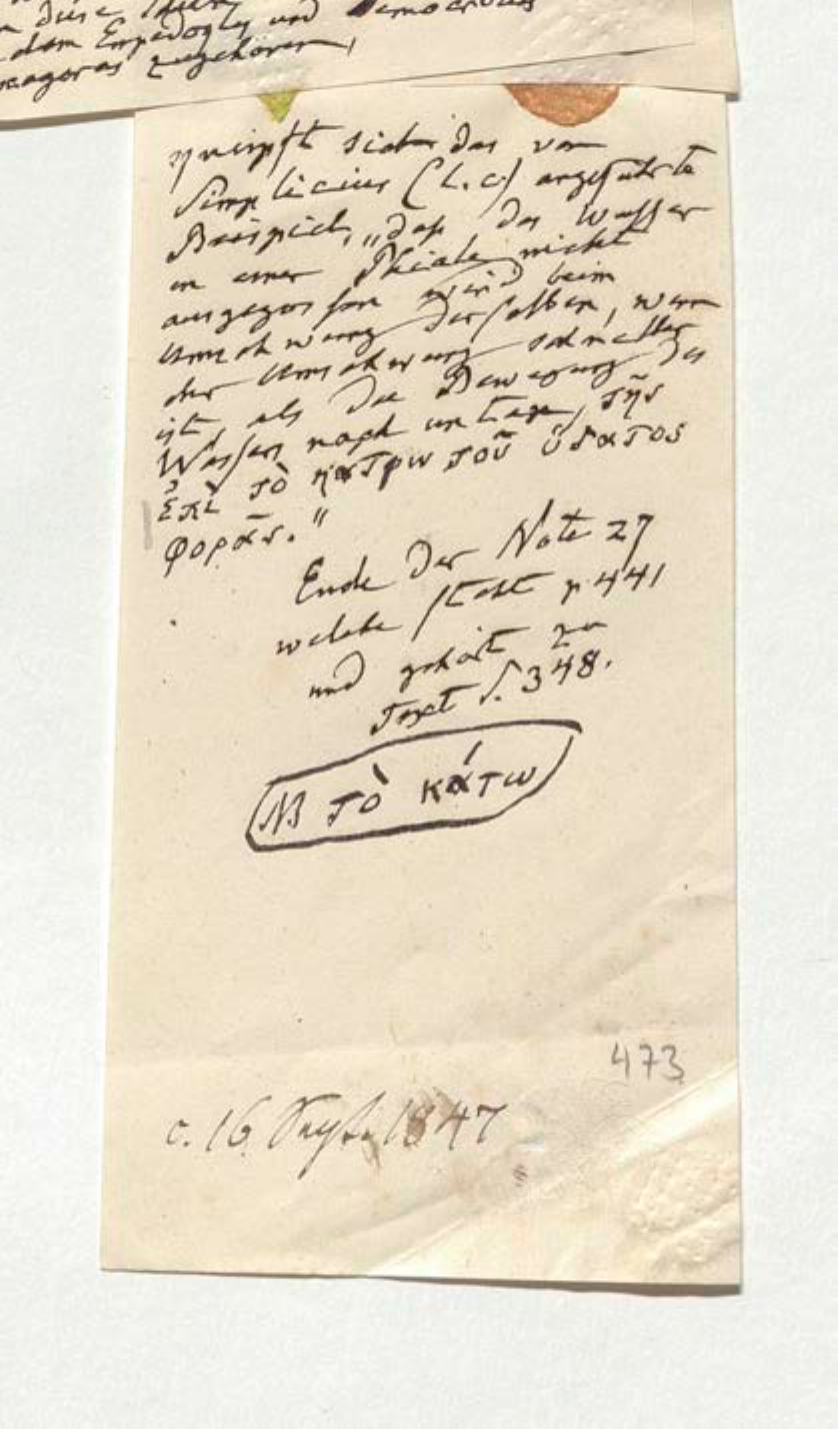 diese Ideen
dem Empedogles und Democritus
naxagoras zugehören,
knüpft sich das von
Simplicius (l. c.) angeführte
Beispiel, „daß das Wasser
in einer Phiale nicht
ausgegossen wird beim
Umschwung derselben, wenn
der Umschwung schneller
ist, als die Bewegung des
Wassers nach unten, τῆς
ἐπὶ τὸ κάτρω τοῦ ὕδατος
φορᾶς."
Ende der Note 27
welche steht p 441
und gehört zu
Text S. 348.
NB τὸ κάτω
473
c. 16 Sept. 1847